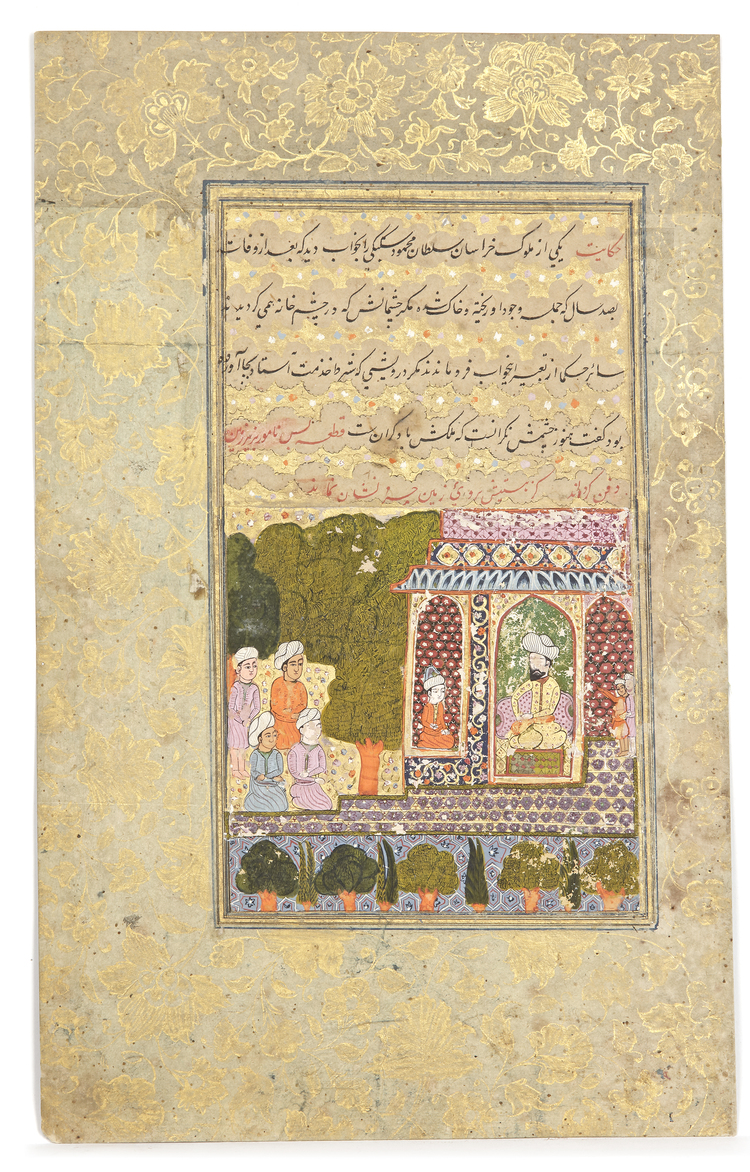 حکایت یکی از ملوک خراسان سلطان محمود سبکتکین را بخواب دید که بعد از وفات
بصد سال که جمله وجود او ریخته و خاک شده مگر چشمانش که در چشم خانه همی گردید
سائر حکما از تعبیر این خواب فرو ماندند مگر درویشی که شرط خدمت استاد بجا آورده
بود گفت هنوز چشمش نگرانست که ملکش با دگران ست قطعه بس نامور بزیر زمین
دفن کرده‌اند کز هستیش بروی زمین بر نشان نماند